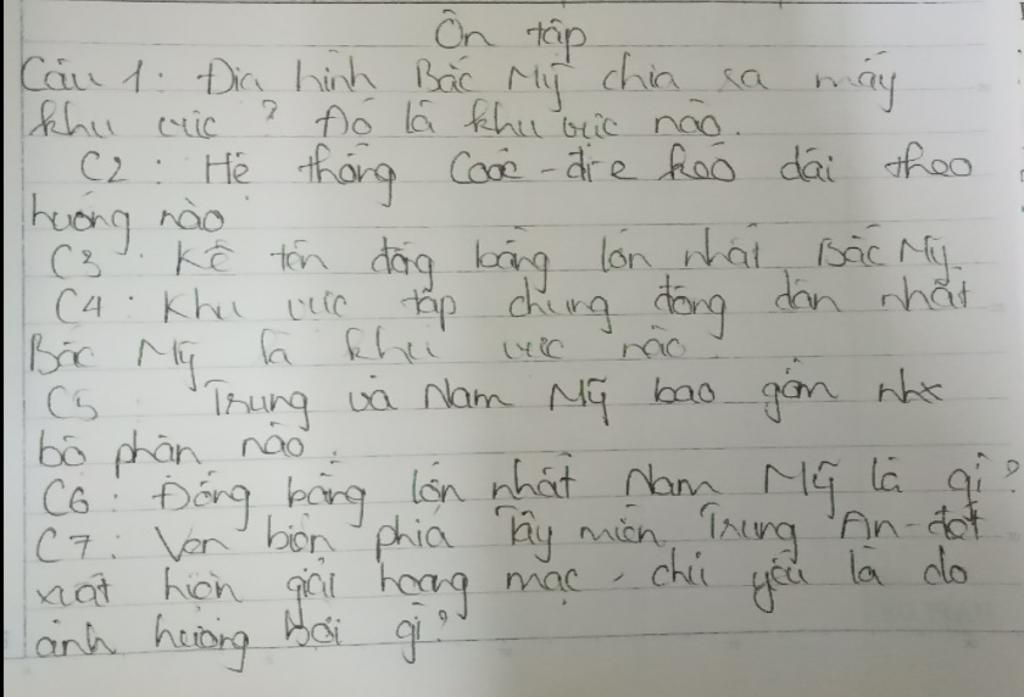 Ôn tập
Câu 1: Địa hình Bắc Mỹ chia ra mấy
khu vực? Đó là khu vực nào.
C2: Hệ thống Cooc-đi-e kéo dài theo
hướng nào
C3: Kể tên đồng bằng lớn nhất Bắc Mỹ.
C4: Khu vực tập chung đông dân nhất
Bắc Mỹ là khu vực nào.
C5 Trung và Nam Mỹ bao gồm
bộ phận nào.
C6: Đồng bằng lớn nhất Nam Mỹ là gì?
C7: Ven biển phía Tây miền Trung An-đét
xuất hiện giải hoang mạc, chủ yếu là do
ảnh hưởng bởi gì?